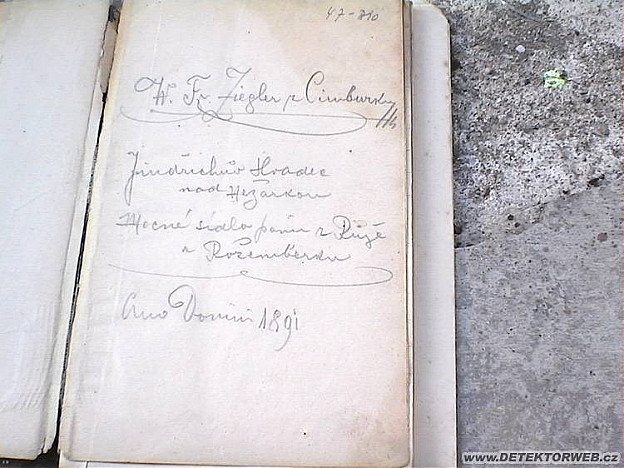 47-810
W. Fr. Ziegler z Cimburku
Jindřichův Hradec
nad Nežárkou
Mocné sídlo pánů z Růže
a Rožemberku
Ano Domini 1891
www.DETEKTORWEB.cz